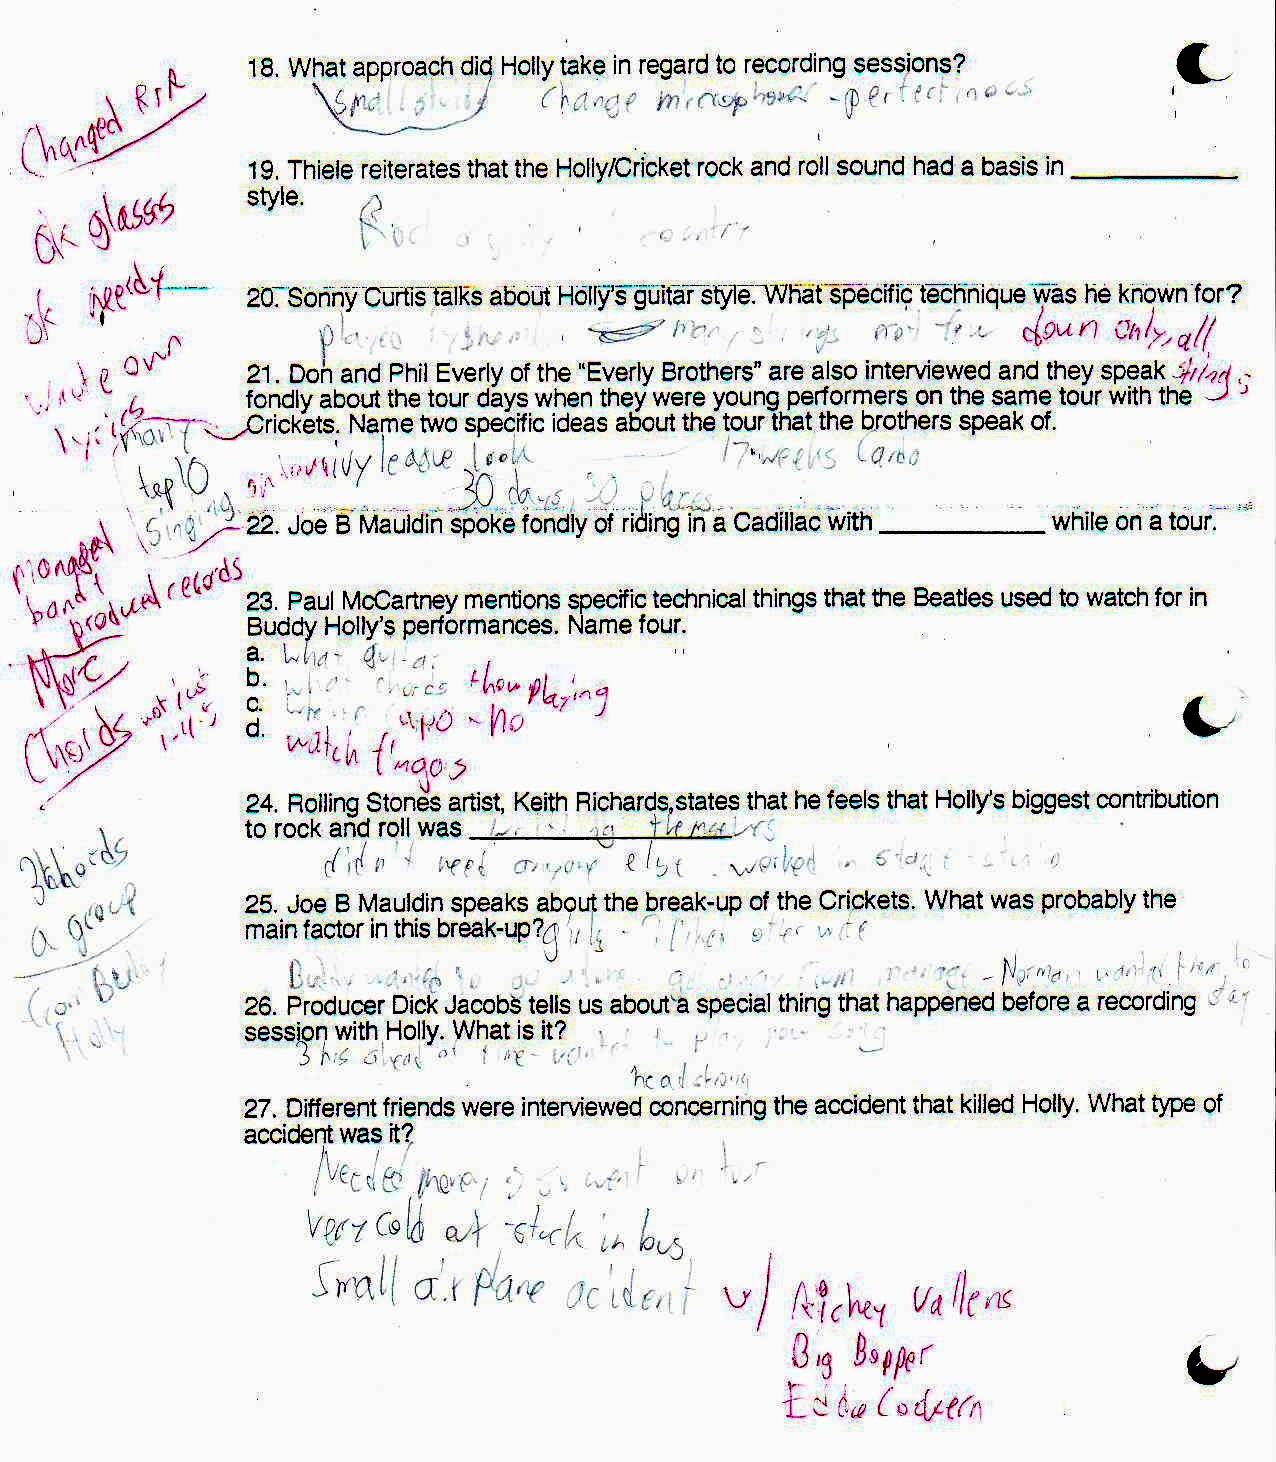 18. What approach did Holly take in regard to recording sessions?
Small change microphones - perfectinoss
Changed R&R
19. Thiele reiterates that the Holly/Cricket rock and roll sound had a basis in ___________
style.
ok glasses
country
ok neerdy
20. Sonny Curtis talks about Holly's guitar style. What specific technique was he known for?
played many strings not few down only, all
strings
Wrote own
lyrics
21. Don and Phil Everly of the "Everly Brothers" are also interviewed and they speak
fondly about the tour days when they were young performers on the same tour with the
Crickets. Name two specific ideas about the tour that the brothers speak of.
many
top 10
singing
ivy leasue look 17 weeks
30 days, 30 places
22. Joe B Mauldin spoke fondly of riding in a Cadillac with ___________ while on a tour.
managed
band +
produced records
23. Paul McCartney mentions specific technical things that the Beatles used to watch for in
Buddy Holly's performances. Name four.
a. What guitar
b. what chords playing
c. capo - no
d. watch fingos
More
Chords not just
1-4-5
24. Rolling Stones artist, Keith Richards, states that he feels that Holly's biggest contribution
to rock and roll was ___________
didn't need anyone else. worked in stage
3 chords
a group
from Buddy
Holly
25. Joe B Mauldin speaks about the break-up of the Crickets. What was probably the
main factor in this break-up? girls
Buddy wanted to go get away from manage - Norman wanted them to
stay
26. Producer Dick Jacobs tells us about a special thing that happened before a recording
session with Holly. What is it?
3 hrs ahead of time - wanted to play new song
headstrong
27. Different friends were interviewed concerning the accident that killed Holly. What type of
accident was it?
Needed money went on tur
very cold at stuck in bus
Small airplane acident w/ Richey Vallens
Big Bopper
Eddie Cockern